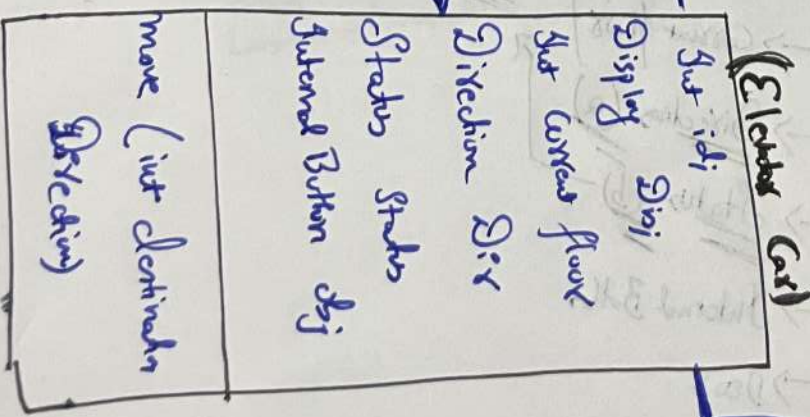 (Elevator Car)
Int id;
Display Dis;
Int Current floor
Direction Dir
Status Status
Internal Button Obj
move (int destination
Direction)